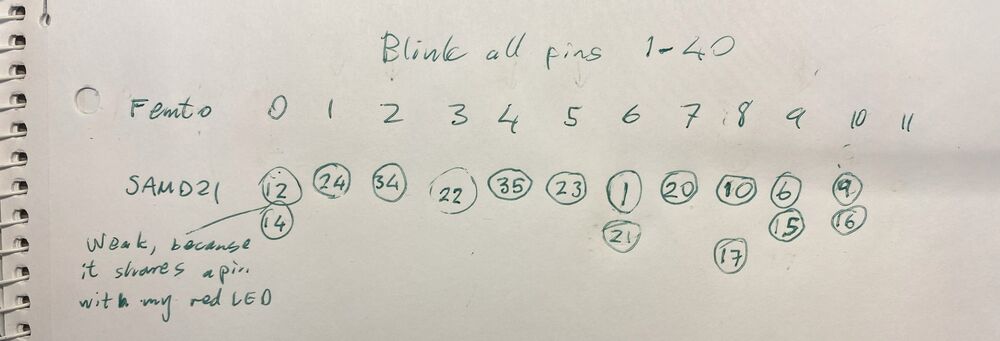 Blink all pins 1-40
Femto 0 1 2 3 4 5 6 7 8 9 10 11
SAMD21 12 24 34 22 35 23 1 20 10 6 9
14 21 17 15 16
Weak, because
it shares a pin
with my red LED